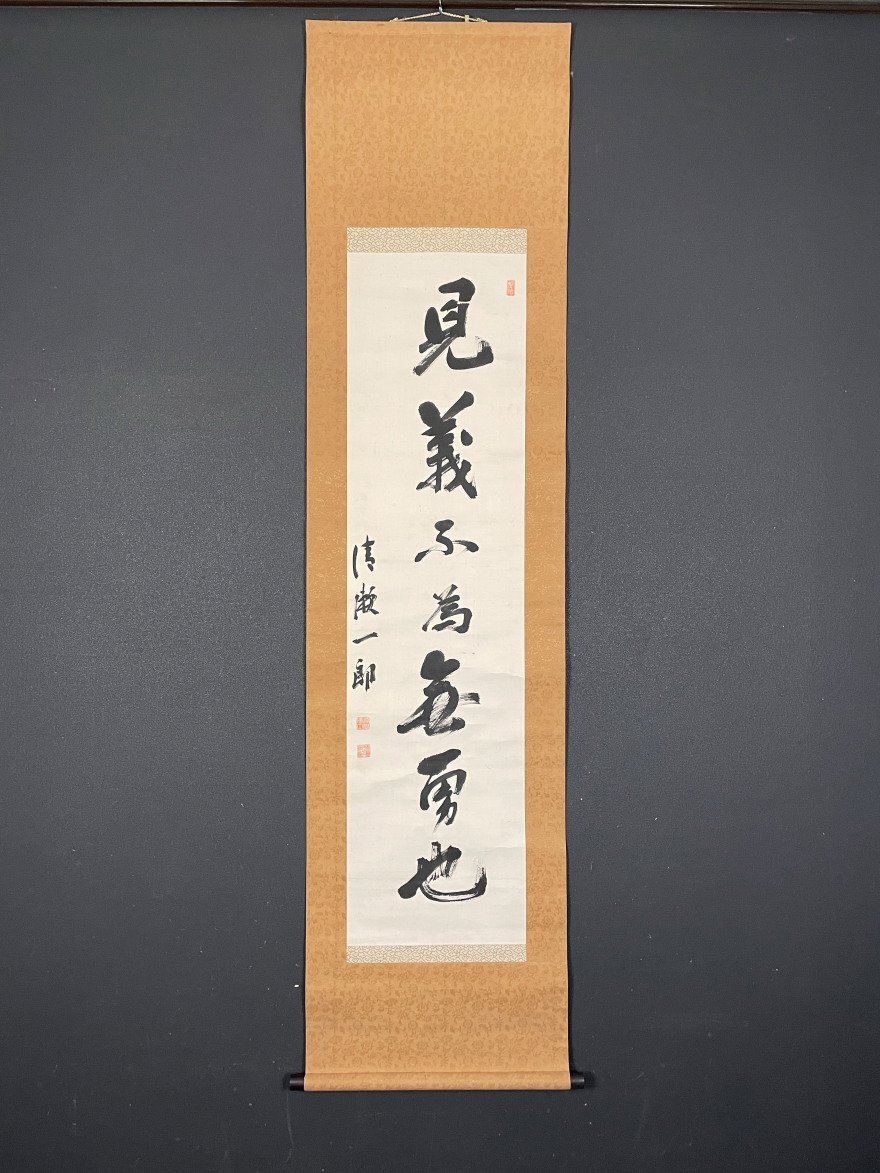 見義不為無勇也
清瀬一郎